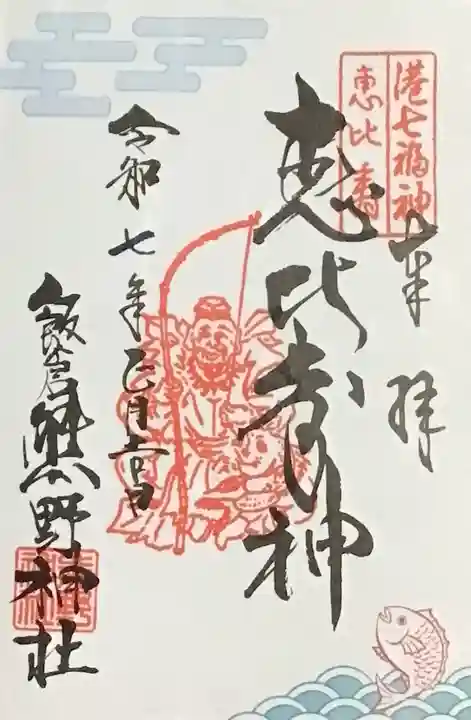 港七福神
恵比寿
奉拝
恵比寿神
令和七年正月吉日
飯倉熊野神社